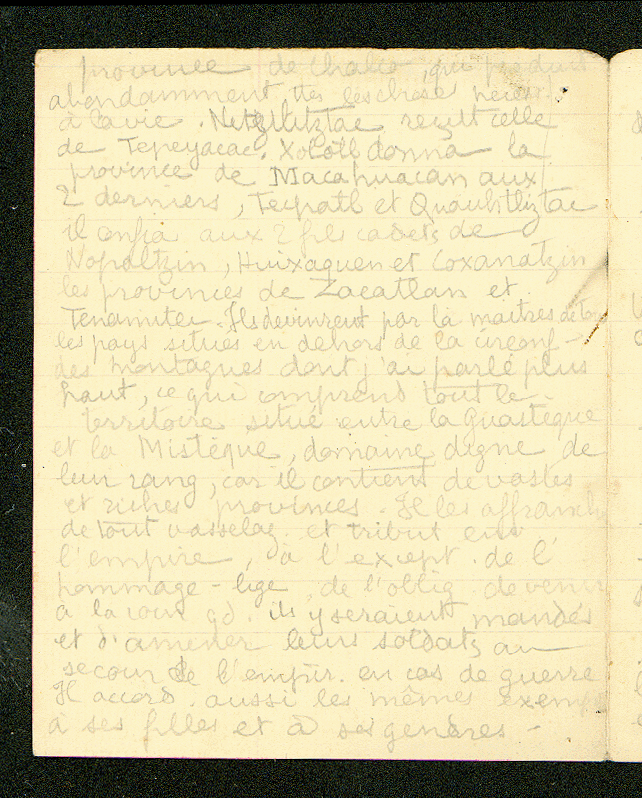 province de Chalco, qui produit
abondamment ttes les chose néces
à la vie. Netzlliztac reçut celle
de Tepeyacac. Xolotl donna la
province de Macahuacan aux
2 derniers, Tecpatl et Quauhtliztac
il confia aux 2 fils cadets de
Nopaltzin, Huixaquen et Coxanatzin
les provinces de Zacatlan et
Tenamitec. Ils devinrent par là maîtres de tous
les pays situés en dehors de la circonf-
des montagnes dont j'ai parlé plus
haut, ce qui comprend tout le
territoire situé entre la Guastèque
et la Mistèque, domaine digne de
leur rang, car il contient de vastes
et riches provinces. Il les affranch
de tout vasselag. et tribut env
l'empire, à l'except. de l'
hommage-lige, de l'oblig. de venir
à la cour qd. ils y seraient mandés
et d'amener leurs soldats au
secour de l'empir. en cas de guerre
Il accord. aussi les mêmes exemp
à ses filles et à ses gendres -